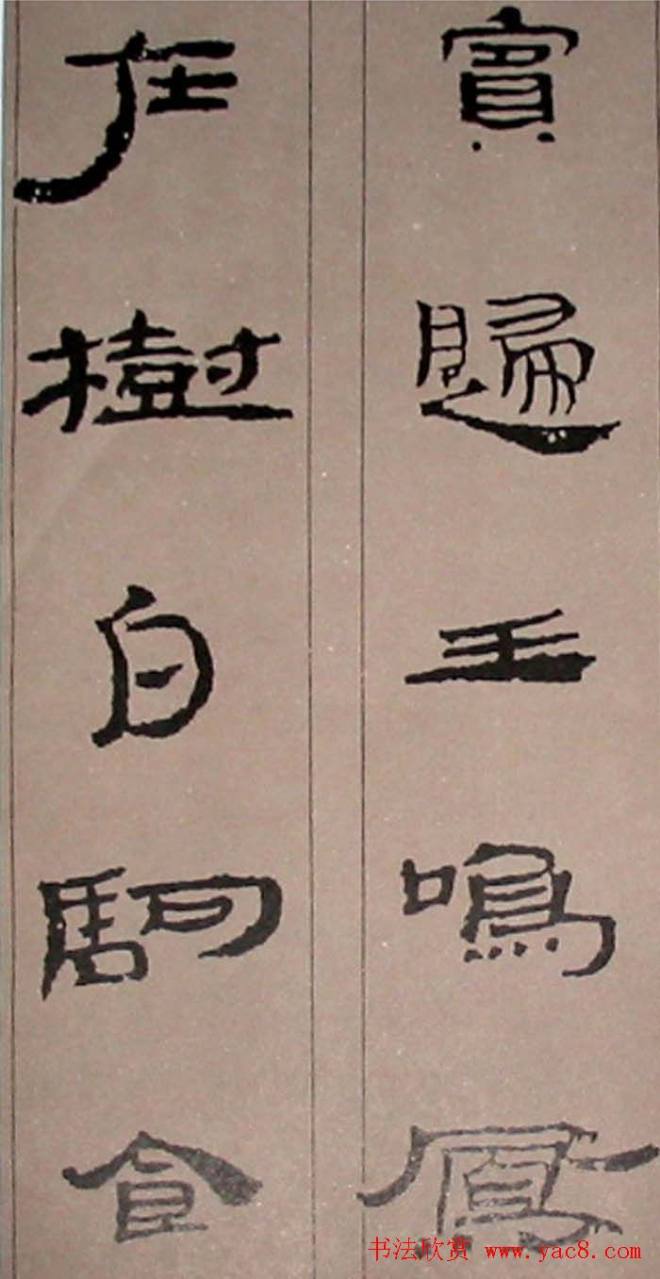 賓歸王鳴鳳
在樹白駒食
书法欣赏 www.yac8.com